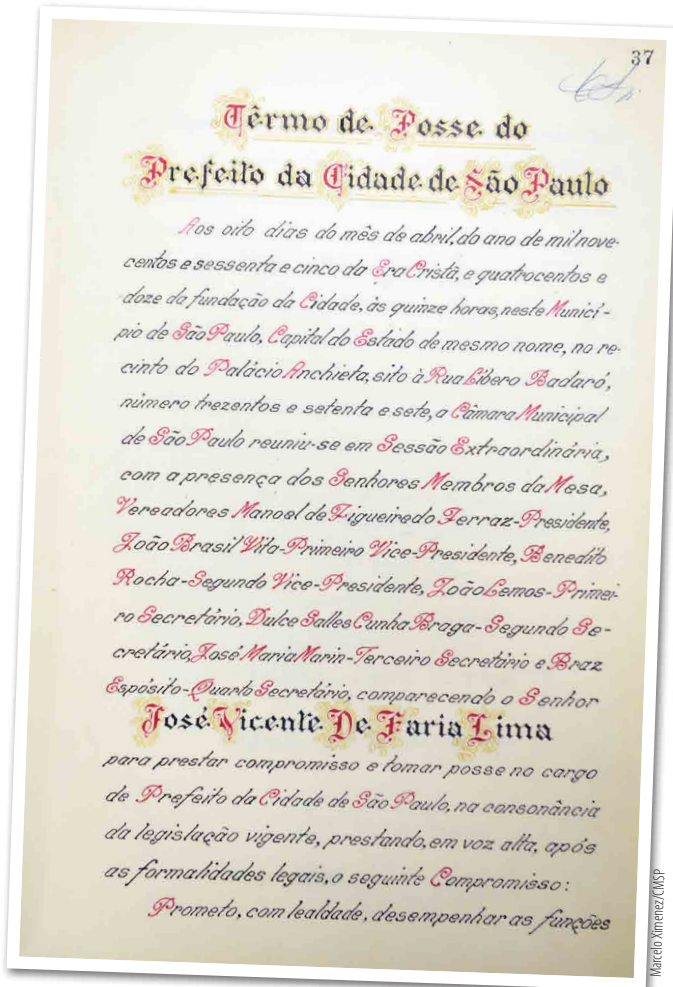 37
Têrmo de Posse do
Prefeito da Cidade de São Paulo
Aos oito dias do mês de abril, do ano de mil nove-
centos e sessenta e cinco da Era Cristã, e quatrocentos e
doze da fundação da Cidade, às quinze horas, neste Municí-
pio de São Paulo, Capital do Estado de mesmo nome, no re-
cinto do Palácio Anchieta, sito à Rua Líbero Badaró,
número trezentos e setenta e sete, a Câmara Municipal
de São Paulo reuniu-se em Sessão Extraordinária,
com a presença dos Senhores Membros da Mesa,
Vereadores Manoel de Figueiredo Ferraz-Presidente,
João Brasil Vita-Primeiro Vice-Presidente, Benedito
Rocha-Segundo Vice-Presidente, João Lemos-Primei-
ro Secretário, Dulce Salles Cunha Braga-Segundo Se-
cretário, José Maria Marin-Terceiro Secretário e Braz
Espósito-Quarto Secretário, comparecendo o Senhor
José Vicente De Faria Lima
para prestar compromisso e tomar posse no cargo
de Prefeito da Cidade de São Paulo, na consonância
da legislação vigente, prestando, em voz alta, após
as formalidades legais, o seguinte Compromisso:
Prometo, com lealdade, desempenhar as funções
Marcelo Ximenez/CMSP